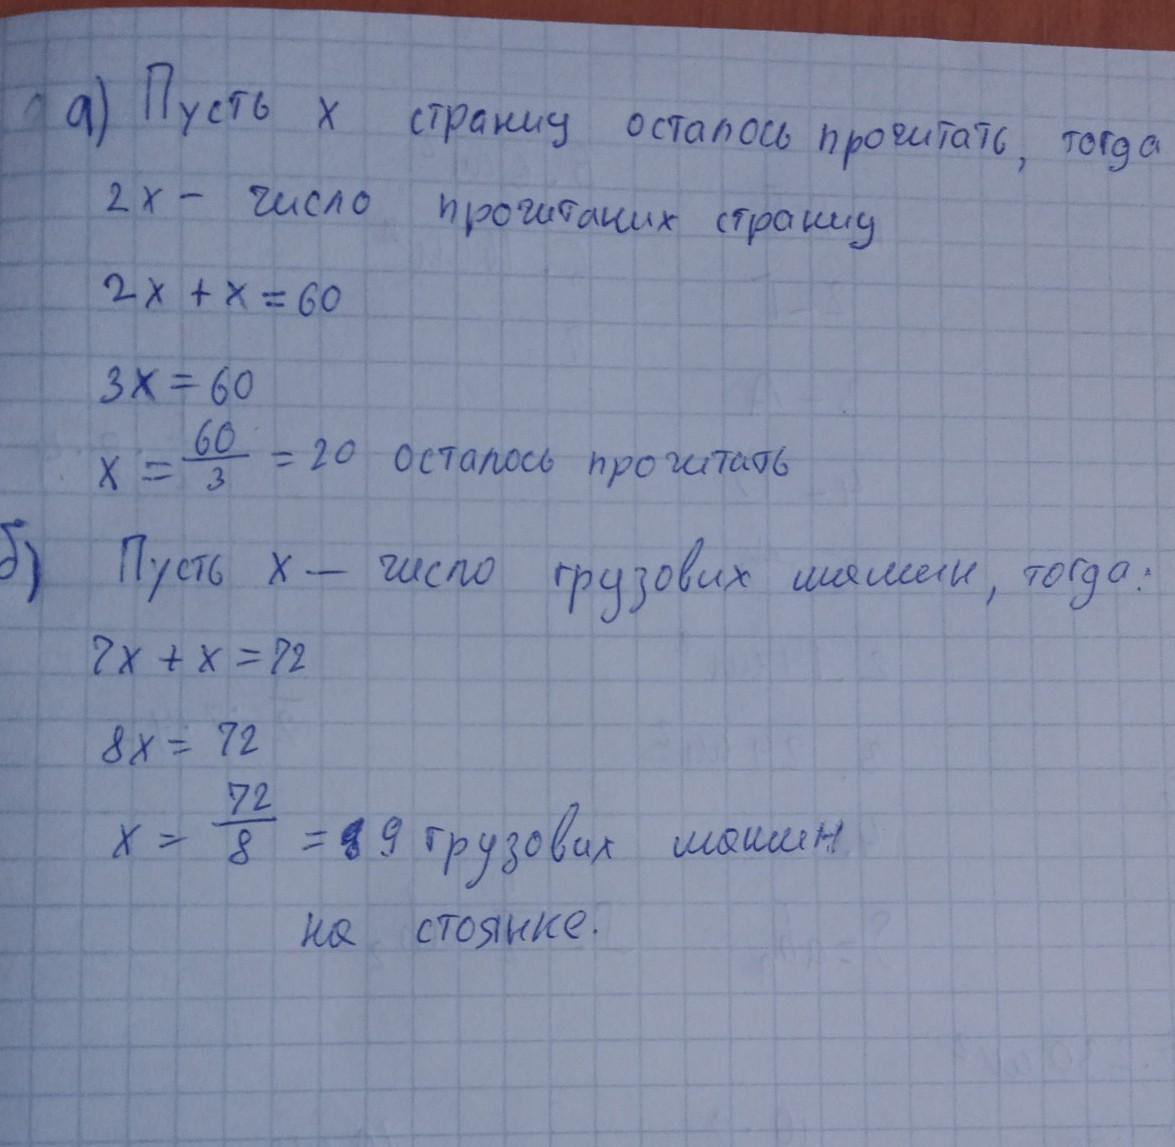 а) Пусть x страниц осталось прочитать, тогда
2x – число прочитаних страниц
2x + x = 60
3x = 60
x = 60/3 = 20 осталось прочитать
б) Пусть x – число грузових машин, тогда:
7x + x = 72
8x = 72
x = 72/8 = 9 грузових машин
на стоянке.